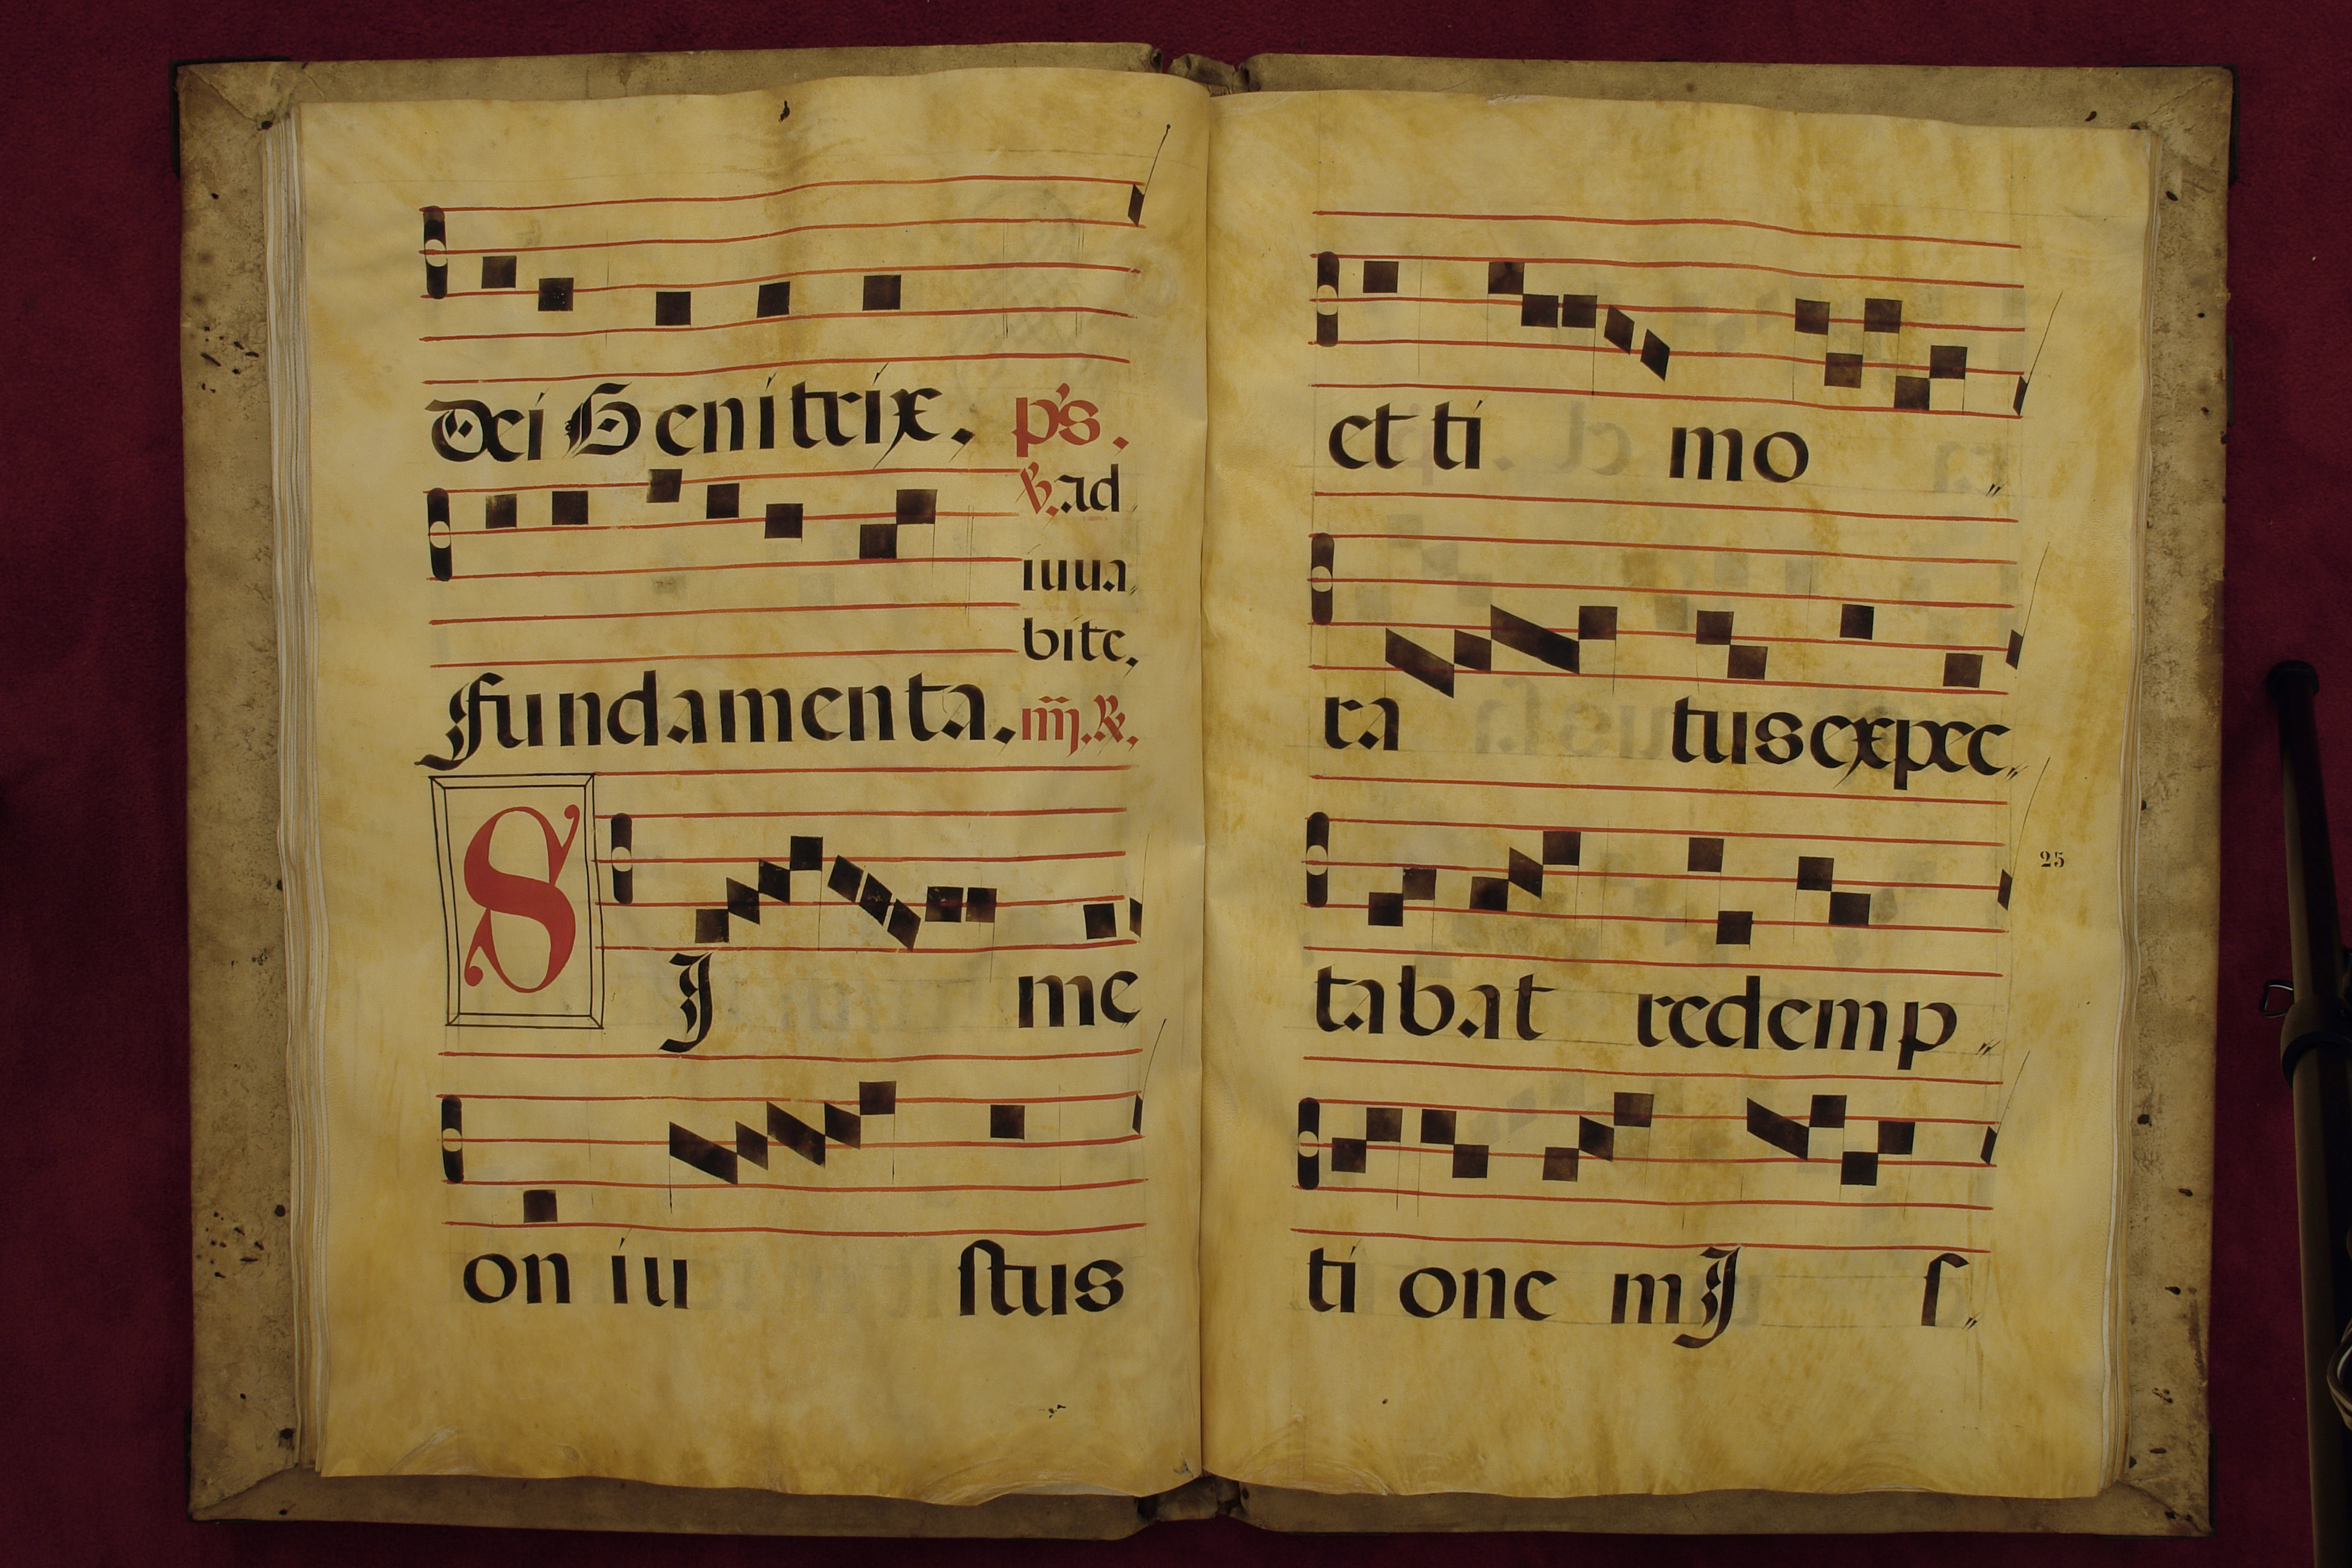 Dei Genitrix. ps.
℣. ad
iuua
bite.
fundamenta. iiij. ℟.
SI me
on iu stus
et ti mo
ra tus expec
tabat redemp
25
ti one mI s